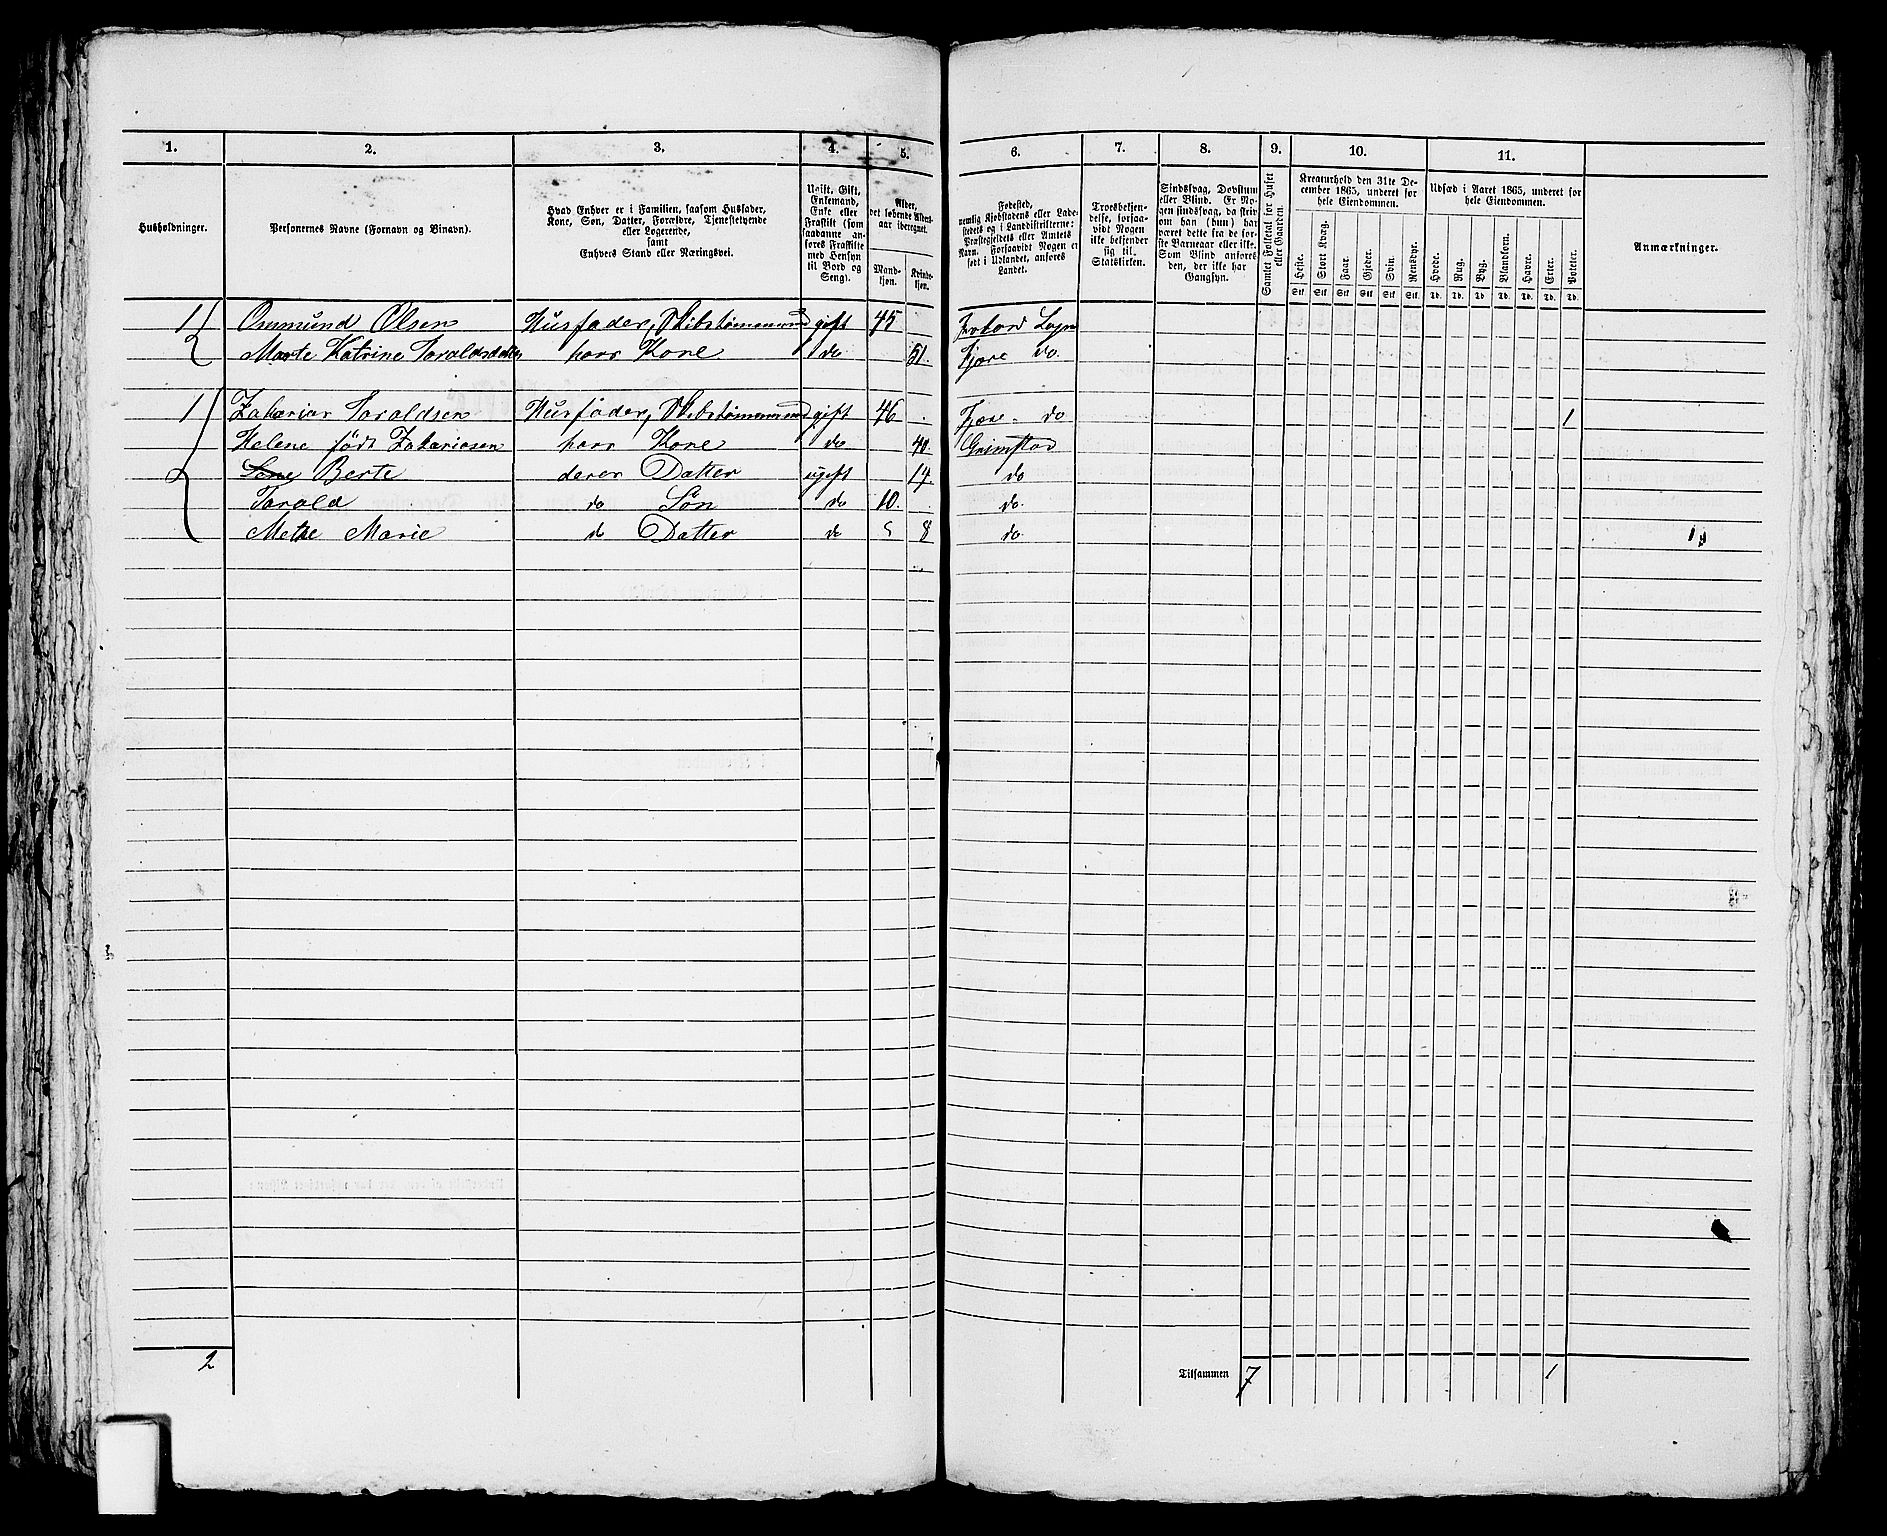 1. 2. 3. 4. 5. 6. 7. 8. 9. 10. 11.
Husholdninger.
Personernes Navne (Fornavn og Binavn).
Hvad Enhver er i Familien, saasom Husfader,
Kone, Søn, Datter, Forældre, Tjenestetyende
eller Logerende,
samt
Enhvers Stand eller Næringsvei.
Ugift, Gift,
Enkemand,
Enke eller
Fraskilt (som
saadanne an-
føres Fraskilte
med Hensyn
til Bord og
Seng).
Alder,
det løbende Alders-
aar iberegnet.
Mand-
kjøn.
Kvinde-
kjøn.
Fødested,
nemlig Kjøbstadens eller Lade-
stedets og i Landdistrikterne:
Præstegjeldets eller Amtets
Navn. Forsaavidt Nogen er
født i Udlandet, anføres
Landet.
Troesbekjen-
delse, forsaa-
vidt Nogen
ikke bekjender
sig til
Statskirken.
Sindssvag, Døvstum
eller Blind. Er No-
gen sindssvag, da skriv
om han (hun) har
været dette fra de før-
ste Barneaar eller ikke.
Som Blind anføres
den, der ikke har
Gangsyn.
Samlet Folketal for Huset
eller Gaarden.
Kreaturhold den 31te De-
cember 1865, underet for
hele Eiendommen.
Heste. Stort Kvæg. Faar. Gjeder. Svin. Rensdyr.
Stk. Stk. Stk. Stk. Stk. Stk.
Udsæd i Aaret 1865, underet for
hele Eiendommen.
Hvede. Rug. Byg. Blandkorn. Havre. Erter. Poteter.
Td. Td. Td. Td. Td. Td. Td.
Anmærkninger.
1 Ommund Olsen Husfader, Skibstømmermand gift 45
2 Marte Katrine Taraldsdatter hans Kone do 51. Fjære do
1 Zakarias Taraldsen Husfader, Skibstømmermand gift 46 Fjære do 1
Helene født Zakariasen hans Kone do 40. Grimstad
2 Berte deres Datter ugift 14 do
Tarald do Søn do 10. do
Methe Marie do Datter do 8 do
2 Tilsammen 7 1